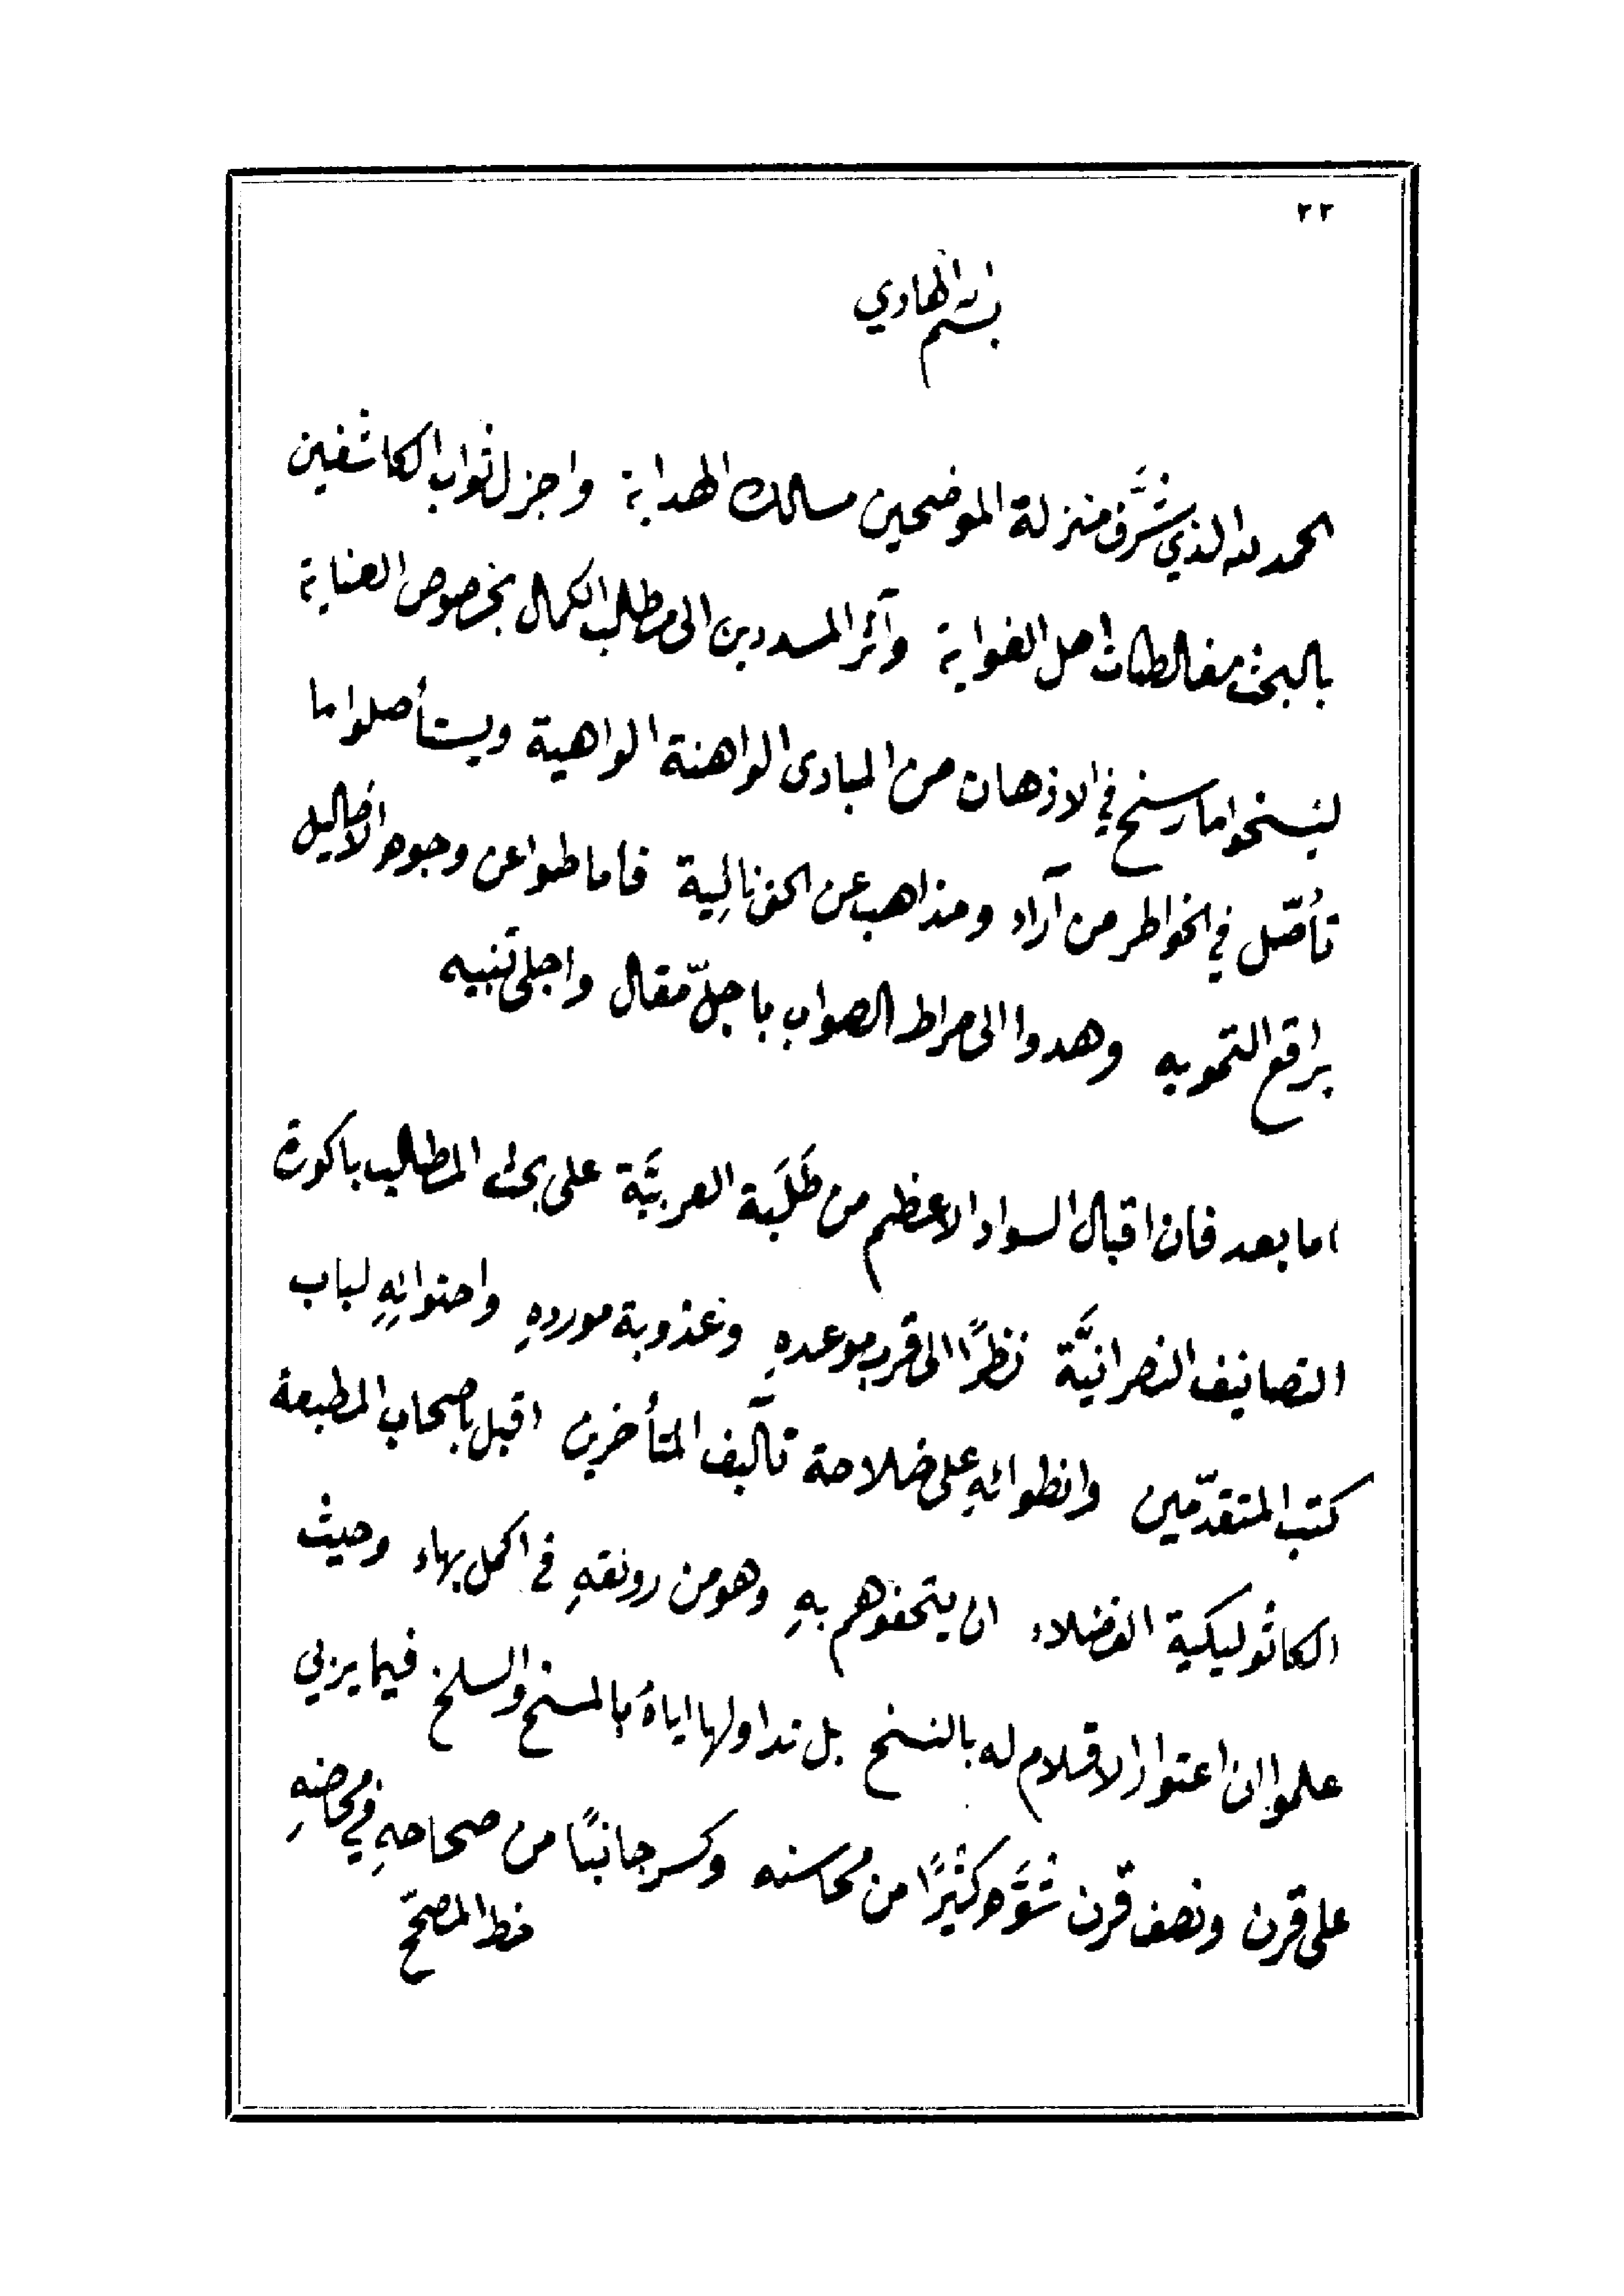 ٢٢
بسم الله الهادي
الحمد لله الذي شَرَّف منزلة الموضحين مسالك الهداية واجزل ثواب الكاشفين
بالبحث مغالطات اهل الغواية وآثر المسددين الى مطلب الكمال بخصوص العناية
لينسخوا ما رسخ في الاذهان من المبادى الواهنة الواهية ويستأصلوا ما
تأصّل في الخواطر من آراء ومذاهب عن الحق نائية فاماطوا عن وجوه الاضاليل
براقع التمويه وهدوا الى صراط الصواب باجلّ مقال واجلى تنبيه
اما بعد فان اقبال السواد الاعظم من طَلَبة العربيَّة على بحث المطالب باكورة
التصانيف النصرانيَّة نظرًا الى قرب موعدهِ وعذوبة موردهِ واحتوائهِ لباب
كتب المتقدّمين وانطوائهِ على خلاصة تآليف المتأخرين اقبل باصحاب المطبعة
الكاثوليكية الفضلاء ان يتحفوهم بهِ وهو من رونقهِ في اكمل بهاء وحيث
علموا ان اعتوار الاقلام له بالنسخ بل تداولها اياهُ بالمسخ والسلخ فيما يربي
على قرن ونصف قرن شَوَّه كثيرًا من محاسنه وكسر جانبًا من صحاحهِ في محاضنهِ
خط المصحّح